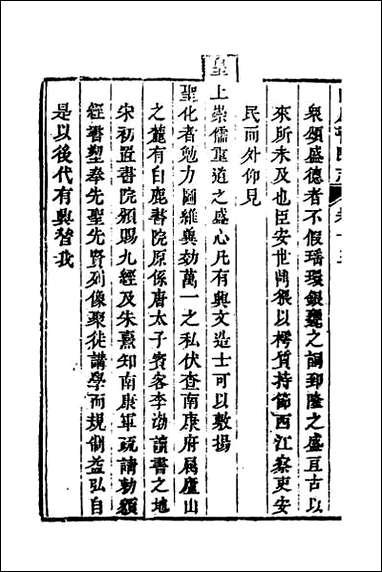 衆頌盛德者不假璠璵銀甕之詞郅隆之盛亘古以
來所未及也臣安世猥以樗質持節西江察吏安
民而外仰見
皇
上崇儒重道之盛心凡有興文造士可以敷揚
聖化者勉力圖維與効萬一之私伏查南康府屬廬山
之麓有白鹿書院原係唐太子賓客李渤讀書之地
宋初置書院頒賜九經及朱熹知南康軍疏請勅額
經書塑奉先聖先賢列像聚徒講學而規制益弘自
是以後代有興替我